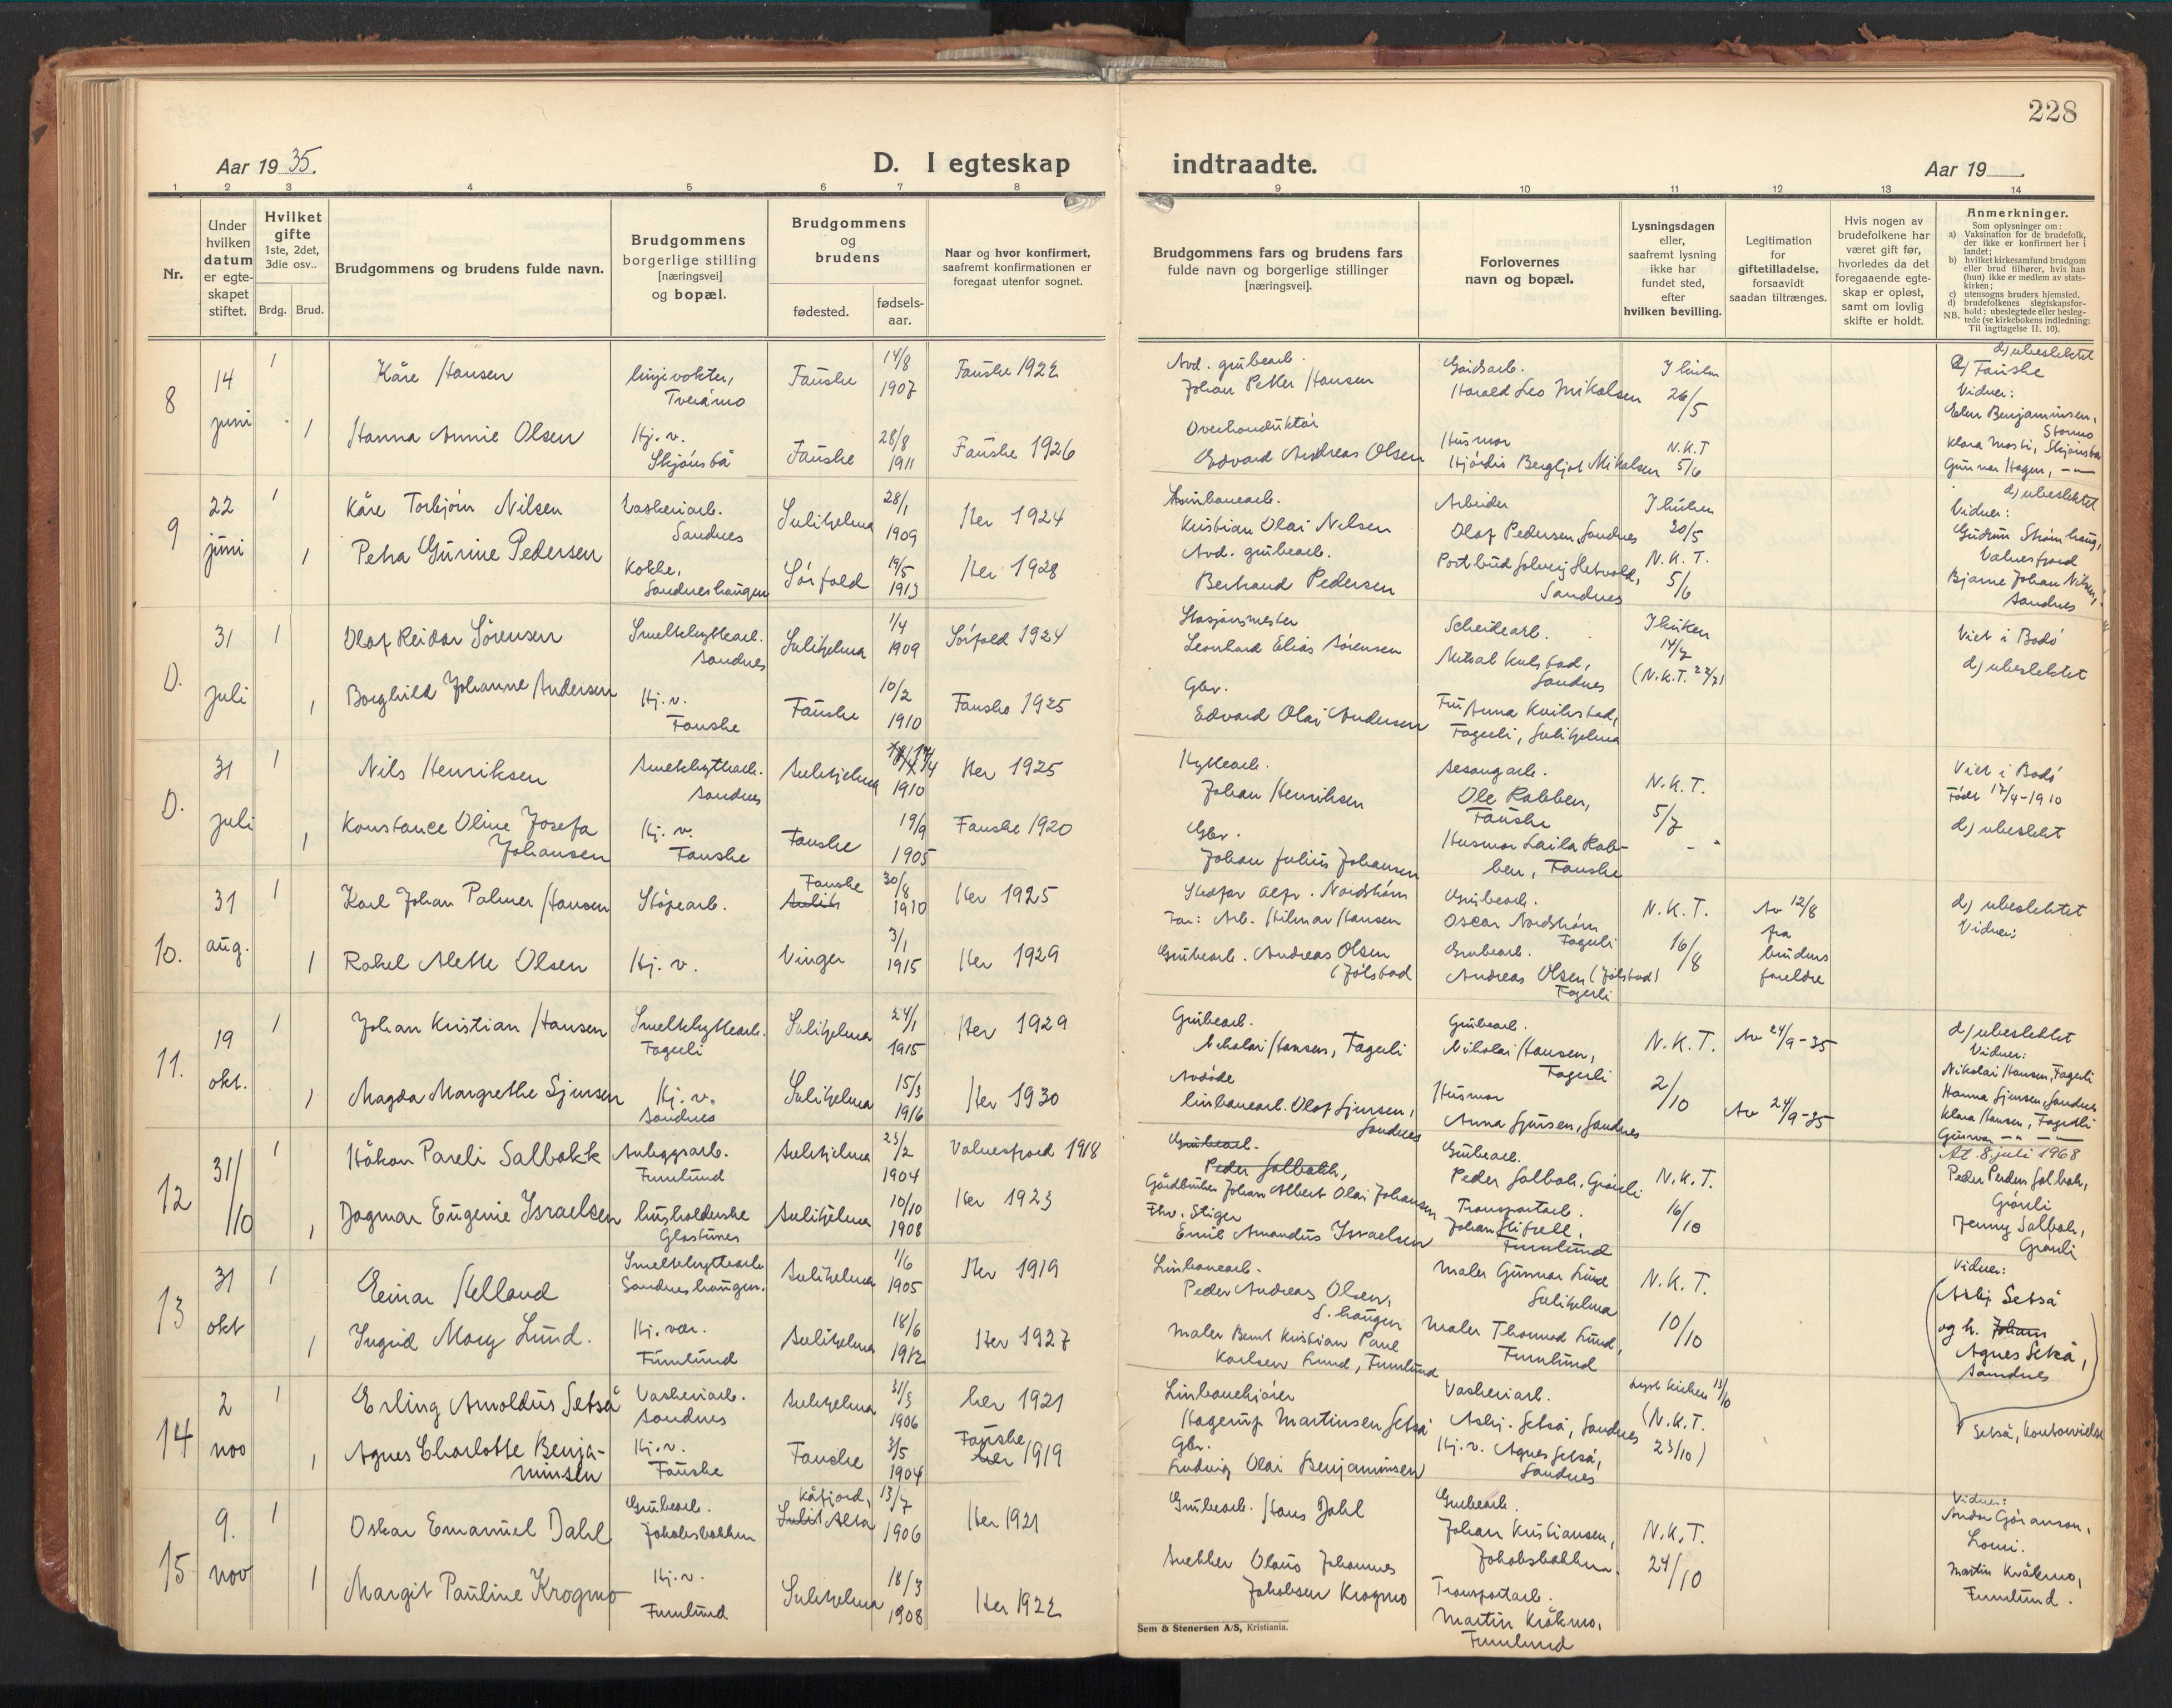 228
Aar 1935.
D. I egteskap
indtraadte.
Aar 19
1 2 3 4 5 6 7 8 9 10 11 12 13 14
Nr.
Under hvilken datum er egte-skapet stiftet.
Hvilket gifte
1ste, 2det, 3die osv..
Brdg. Brud.
Brudgommens og brudens fulde navn.
Brudgommens borgerlige stilling [næringsvei] og bopæl.
Brudgommens og brudens
fødested.
fødsels-aar.
Naar og hvor konfirmert, saafremt konfirmationen er foregaat utenfor sognet.
Brudgommens fars og brudens fars fulde navn og borgerlige stillinger [næringsvei].
Forlovernes navn og bopæl.
Lysningsdagen eller, saafremt lysning ikke har fundet sted, efter hvilken bevilling.
Legitimation for giftetilladelse, forsaavidt saadan tiltrænges.
Hvis nogen av brudefolkene har været gift før, hvorledes da det foregaaende egte-skap er opløst, samt om lovlig skifte er holdt.
Anmerkninger.
Som oplysninger om:
a) Vaksination for de brudefolk, der ikke er konfirmert her i landet;
b) hvilket kirkesamfund brudgom eller brud tilhører, hvis han (hun) ikke er medlem av stats-kirken;
c) utensogns bruders hjemsted.
d) brudefolkenes slegtskapsfor-hold: ubeslegtede eller besleg-tede (se kirkebokens indledning:
NB. Til iagttagelse II. 10).
8 14 juni 1
Kåre Hansen
linjevokter, Tveråmo
Fauske 14/8 1907
Fauske 1922
Avd. grubearb.
Johan Petter Hansen
Gårdsarb.
Harald Leo Mikalsen
I kirken 26/5
d) ubeslektet
Fauske
Vidner:
Elen Benjaminsen,
1 Hanna Annie Olsen
Hj. v. Skjønstå
Fauske 28/8 1911
Fauske 1926
Overkonduktør
Edvard Andreas Olsen
Husmor
Hjørdis Bergljot Mikalsen
N.K.T 5/6
Klara Mosti, Skjønstå
Gunnar Hagen, — " —
9 22 juni 1
Kåre Torbjørn Nilsen
Vaskeriarb. Sandnes
Sulitjelma 28/1 1909
Her 1924
Linbanearb.
Kristian Olai Nilsen
Arbeider
Olaf Pedersen, Sandnes
I kirken 20/5
d) ubeslektet
Vidner:
Gudrun Strømhaug, Valnesfjord
1 Petra Gurine Pedersen
Kokke, Sandneshaugen
Sørfold 19/5 1913
Her 1928
Avd. grubearb.
Bertrand Pedersen
Postbud Solveig Hetvold, Sandnes
N.K.T. 5/6
Bjarne Johan Nilsen, Sandnes
D. 31 juli 1
Olaf Reidar Sørensen
Smeltehyttearb. Sandnes
Sulitjelma 1/4 1909
Sørfold 1924
Stasjonsmester
Leonhard Elias Sørensen
Scheidearb.
Sandnes
I kirken 14/7
(N.K.T. 22/7)
Viet i Bodø
d) ubeslektet
1 Borghild Johanne Andersen
Hj. v. Fauske
Fauske 10/2 1910
Fauske 1925
Gbr.
Edvard Olai Andersen
Fru Anna Kvilstad,
Fagerli, Sulitjelma
D. 31 juli 1
Nils Henriksen
Smeltehyttearb. Sandnes
Sulitjelma 17/4 1910
Her 1925
Hyttearb.
Johan Henriksen
Sesongarb.
Ole Rabben, Fauske
N.K.T. 5/7
Viet i Bodø
Født 17/4-1910
d) ubeslekt
1 Konstance Oline Josefa Johansen
Hj. v. Fauske
Fauske 19/9 1905
Fauske 1920
Gbr.
Johan Julius Johansen
Husmor Laila Rab-
ben, Fauske
- "
10. 31 aug. 1
Karl Johan Palmer Hansen
Støpearb.
Fauske
Sulit 30/8 1910
Her 1925
Stedfar Alfr. Nordstrøm
Far: Arb. Hilmar Hansen
Grubearb.
Oscar Nordstrøm Fagerli
N.K.T. 16/8
Av 12/8 fra brudens foreldre
d) ubeslektet
Vidner:
1 Rakel Alette Olsen
Hj. v.
Vinger 3/1 1915
Her 1929
Grubearb. Andreas Olsen (Jølstad
Grubearb.
Andreas Olsen (Jølstad)
Fagerli
11. 19 okt. 1
Johan Kristian Hansen
Smeltehyttearb. Fagerli
Sulitjelma 24/1 1915
Her 1929
Grubearb.
Nikolai Hansen, Fagerli
Grubearb.
Nikolai Hansen, Fagerli
N.K.T. 2/10
Av 24/9-35
d) ubeslektet
Vidner:
Nikolai Hansen, Fagerli
1 Magda Margrethe Sjursen
Hj. v. Sandnes
Sulitjelma 15/3 1916
Her 1930
Avdøde
linbanearb. Olaf Sjursen, Sandnes
Husmor
Anna Sjursen, Sandnes
Av 24/9-35
Hanna Sjursen, Sandnes
Klara Hansen, Fagerli
12 31/10 1
Håkon Pareli Salbakk
Anleggsarb. Furulund
Sulitjelma 23/2 1904
Valnesfjord 1918
Grubearb.
Peder Salbakk,
Gårdbruker Johan Albert Olai Johansen
Grubearb.
Peder Salbak, Grønli
N.K.T. 16/10
At. 8. juli 1968
Peder Pedersen Salbak, Grønli
1 Dagmar Eugenie Israelsen
husholderske Glastunes
Sulitjelma 10/10 1908
Her 1923
Fhv. Stiger
Emil Amandus Israelsen
Transportarb.
Furulund
Jenny Salbak, Grønli
13 31 okt 1
Einar Helland
Smeltehyttearb. Sandneshaugen.
Sulitjelma 1/6 1905
Her 1919
Linbanearb.
Peder Andreas Olsen, S. haugen
Maler Gunnar Lund Sulitjelma
N.K.T. 10/10
Vidner:
1 Ingrid Mary Lund.
Hj. vær. Furulund
Sulitjelma 18/6 1912
Her 1927
Maler Bernt Kristian Paul
Karlsen Lund, Furulund
Maler Thomas Lund, Furulund
(Asbj Setså
og h. Johan
Agnes Setså,
Sandnes
14 2 nov 1
Erling Arnoldus Setså
Vaskeriarb. Sandnes
Sulitjelma 31/3 1906
her 1921
Linbanekjører
Hagerup Martinsen Setså
Vaskeriarb.
Asbj. Setså, Sandnes
Lyst kirken 13/10
(N.K.T. 23/10)
Setså,
1 Agnes Charlotte Benja-
minsen
Hj. v. Fauske
Fauske 3/5 1904
Fauske
her 1919
Gbr.
Ludvig Olai Benjaminsen
Hj. v. Agnes Setså, Sandnes
15 9. nov 1
Oskar Emanuel Dahl
Grubearb. Jakobsbakken
Kåfjord,
Sulit Alta 13/7 1906
Her 1921
Grubearb. Hans Dahl
Grubearb.
Johan Kristiansen, Jakobsbakken.
N.K.T. 24/10
Vidner:
Lomi.
1 Margit Pauline Krogmo
Hj. v. Furulund
Sulitjelma 18/3 1908
Her 1922
Snekker Olaus Johannes
Jakobsen Krogmo
Transportarb.
Martin Kråkmo, Furulund
Martin Kråkmo,
Furulund.
Sem & Stenersen A/S, Kristiania.